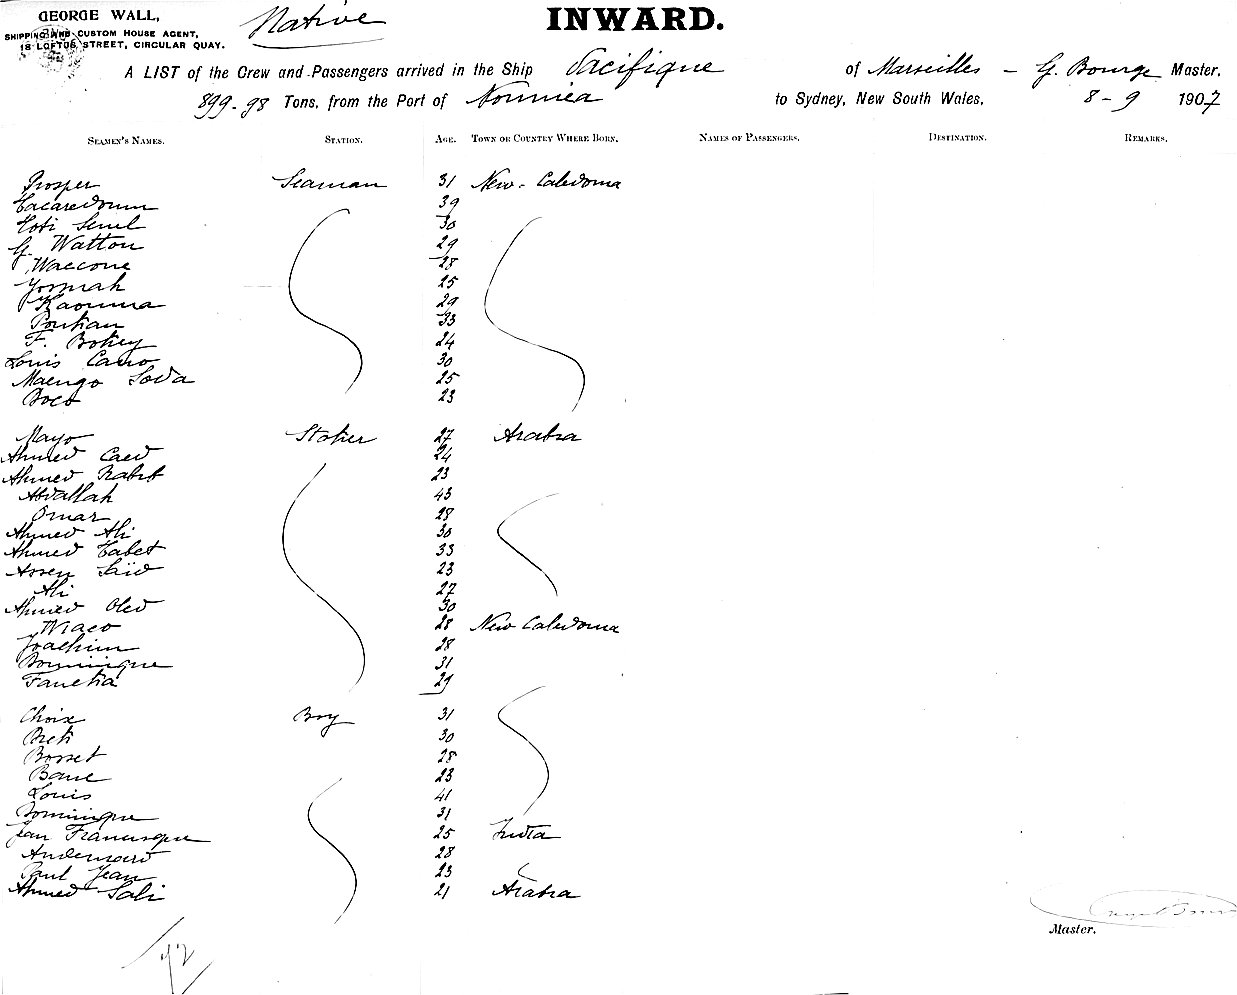 GEORGE WALL, Native INWARD.
SHIPPING AND CUSTOM HOUSE AGENT,
18 LOFTUS STREET, CIRCULAR QUAY.
A LIST of the Crew and Passengers arrived in the Ship Pacifique of Marseilles - G. Bourge Master,
899.98 Tons, from the Port of Noumea to Sydney, New South Wales, 8-9 1907
SEAMEN'S NAMES. STATION. AGE. TOWN OR COUNTRY WHERE BORN. NAMES OF PASSENGERS. DESTINATION. REMARKS.
Prosper Seaman 31 New-Caledonia
39
30
G. Watton 29
Waccone 28
25
Kaouma 29
Pouhau 33
F. Bokey 24
Louis 30
Maengo 25
Boco 23
Mayo Stoker 27 Arabia
Ahmed Caed 24
Ahmed 23
Abdallah 43
Omar 28
Ahmed Ali 30
Ahmed Tabet 33
Assen Saïd 23
Ali 27
Ahmed Oled 30
Wiaco 28 New Caledonia
Joachim 28
Dominique 31
29
Choix Boy 31
30
Bosset 28
Baue 23
Louis 41
Dominique 31
Jean Francisque 25 India
28
Paul Jean 23
Ahmed Sali 21 Arabia
Master.